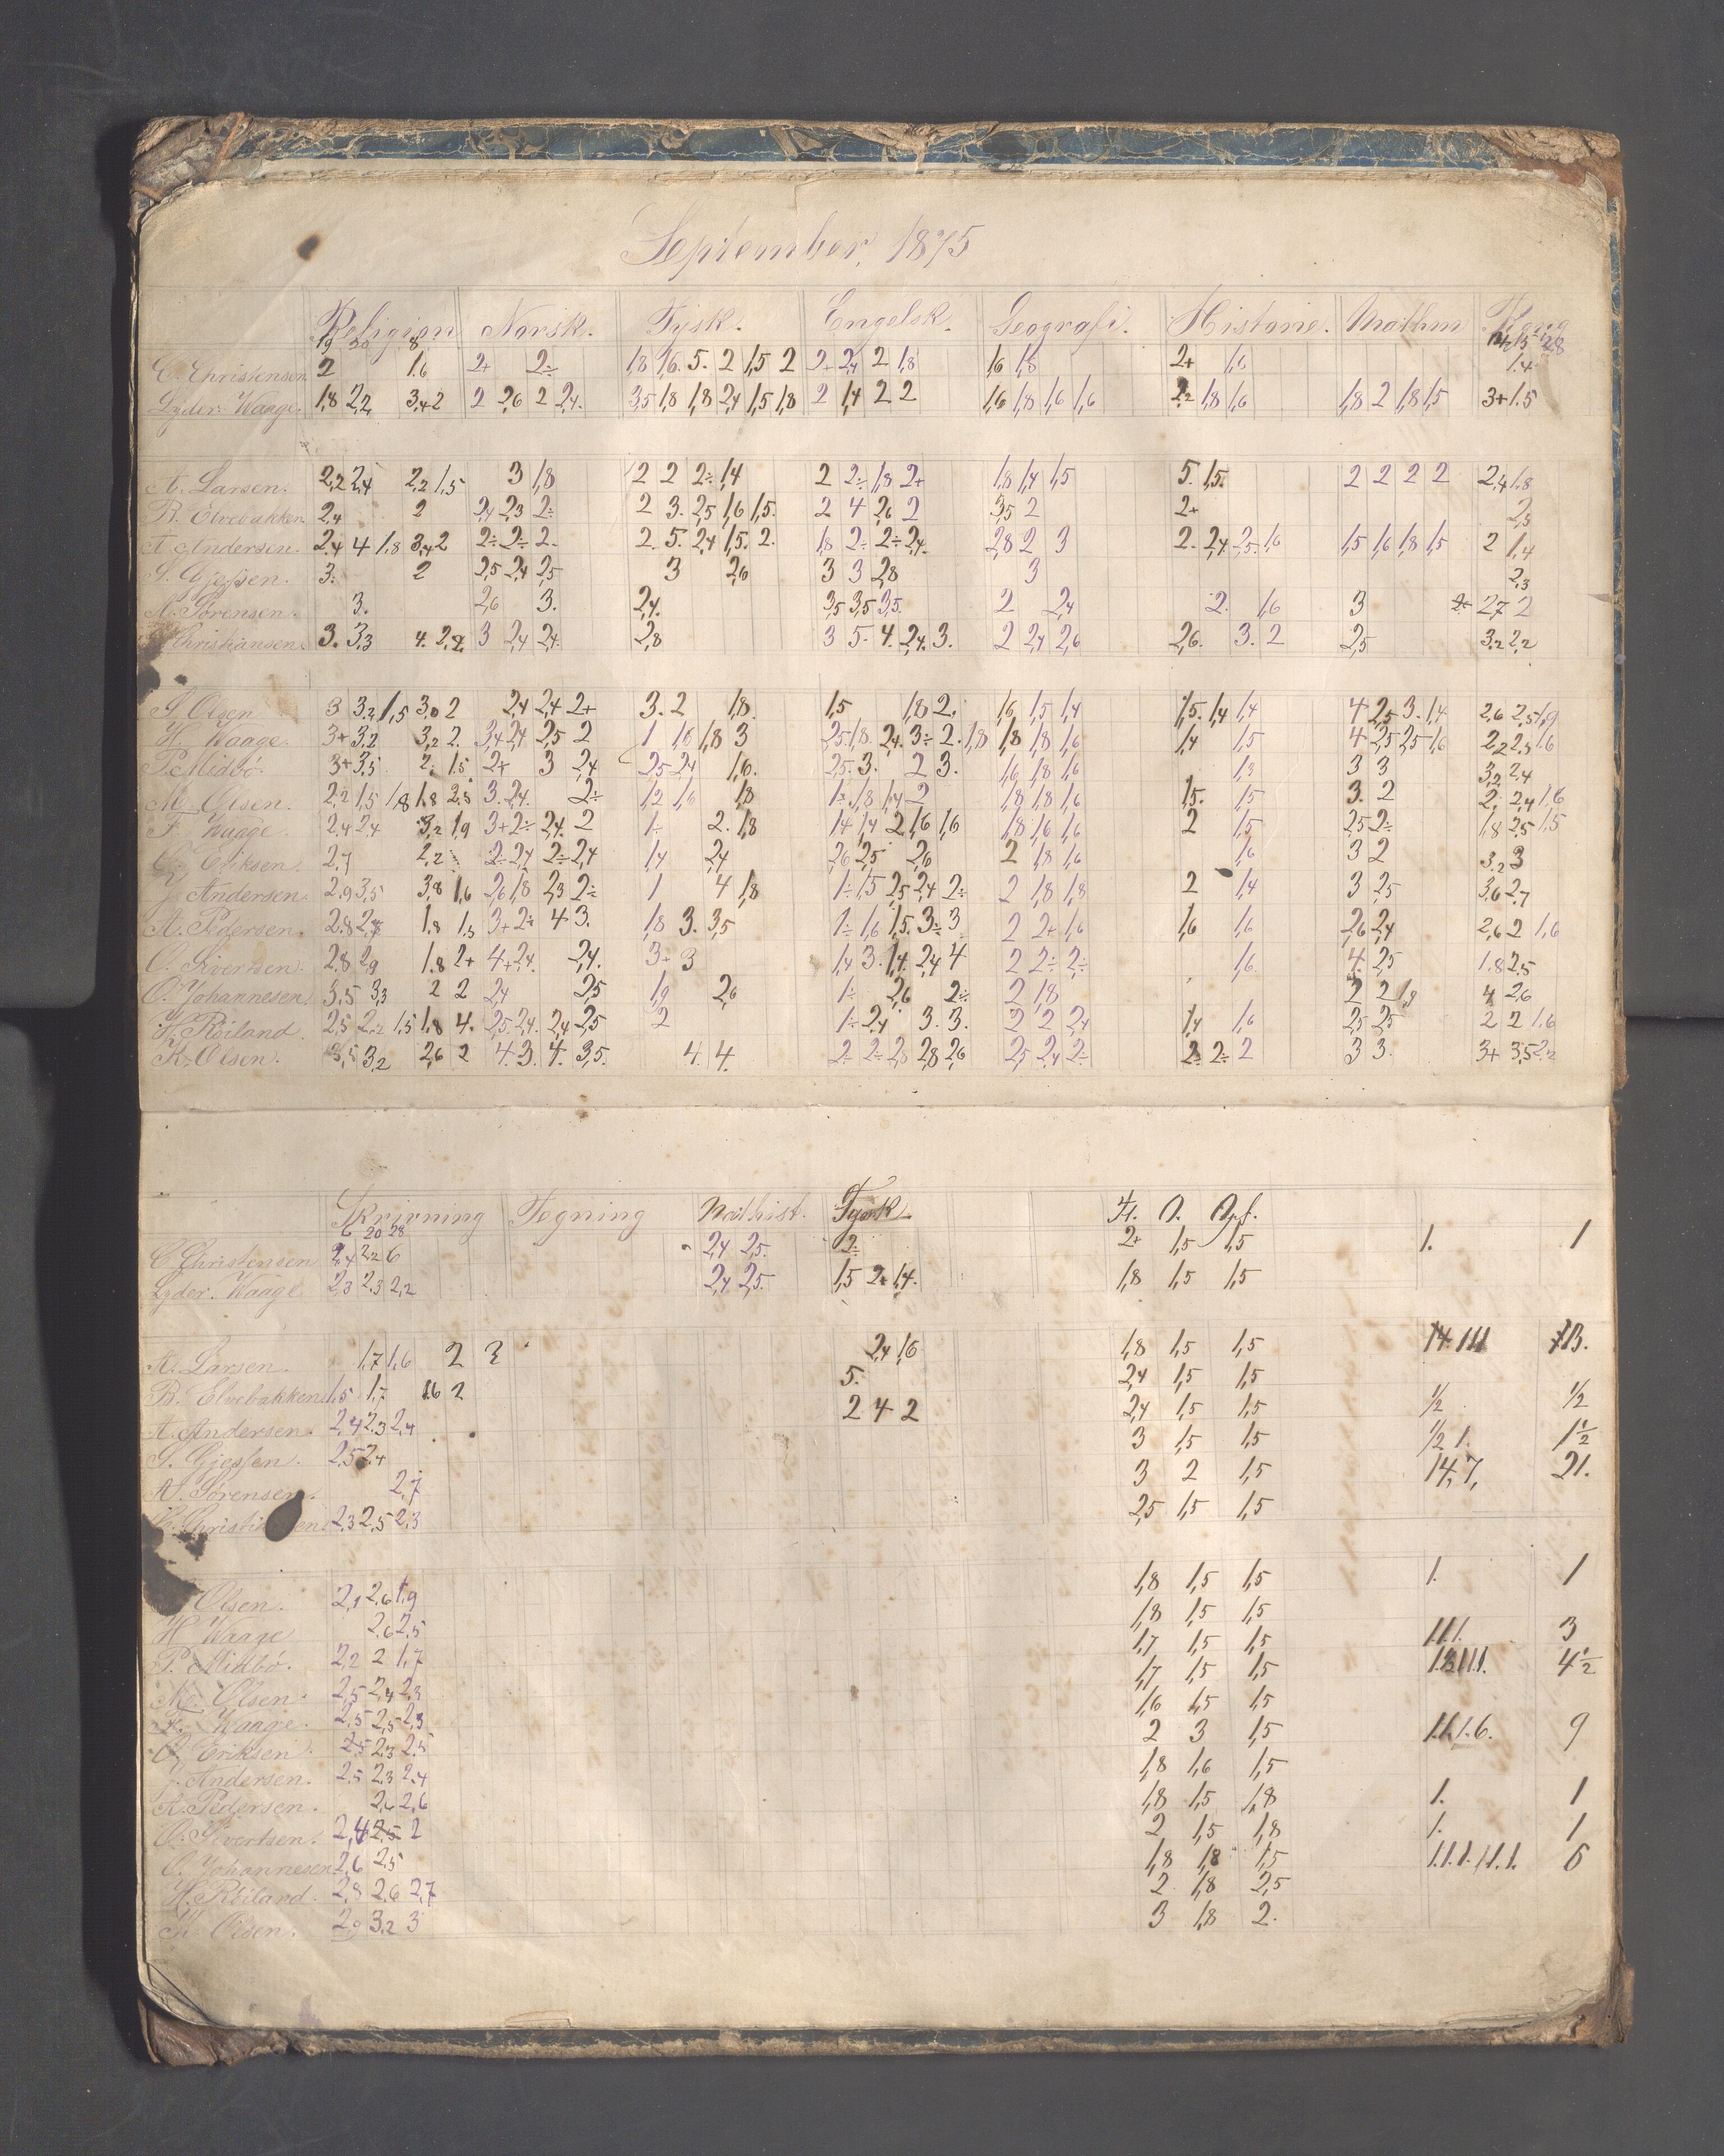 September, 1875
Religion Norsk. Tysk. Engelsk. Geografi. Historie. Mathm Regng
C. Christensen 2 1,6 2+ 2÷ 1,8 1,6. 5. 2 1,5 2 2+ 2,4 2 1,8 1,6 1,8 2+ 1,6 1,4
Lyder. Waage. 1,8 2,2 3,4 2 2 2,6 2 2,4. 3,5 1,8 1,8 2,4 1,5 1,8 2 1,4 2 2 1,6 1,8 1,6 1,6 2,2 1,8 1,6 1,8 2 1,8 1,5 3+ 1.5
A. Larsen. 2,2 2,4 2,2 1,5 3 1,8 2 2 2÷ 1,4 2 2÷ 1,8 2+ 1,8 1,4 1,5 5. 1,5. 2 2 2 2 2,4 1,8
B. Elvebakken 2,4 2 2,4 2,3 2÷ 2 3. 2,5 1,6 1,5. 2 4 2,6 2 3,5 2 2+ 2,5
A Andersen. 2,4 4 1,8 3,4 2 2÷ 2÷ 2. 2. 5. 2,4 1,5. 2. 1,8 2÷ 2÷ 2,4. 2,8 2 3 2. 2,4 2,5. 1,6 1,5 1,6 1,8 1,5 2 1,4
S. Gjessen. 3. 2 2,5 2,4 2,5 3 2,6 3 3 2,8 3 2,3
A. Sørensen. 3. 2,6 3. 2,4. 3,5 3,5 3,5. 2 2,4 2. 1,6 3 2,7 2
Christiansen. 3. 3,3 4. 2,2. 3 2,4 2,4. 2,8 3 5. 4. 2,4. 3. 2 2,4 2,6 2,6. 3. 2 2,5 3,2 2,2
S. Olsen 3 3,2 1,5 3,0 2 2,4 2,4 2+ 3. 2 1,8. 1,5 1,8 2. 1,6 1,5 1,4 1,5. 1,4 1,4 4 2,5 3. 1,4 2,6 2,5 1,9
H. Waage. 3+ 3,2 3,2 2. 3,4 2,4 2,5 2 1 1,6 1,8 3 2,5. 1,8. 2,4. 3÷ 2. 1,8 1,8 1,8 1,6 1,4 1,5 4 2,5 2,5 1,6 2,2 2,3 1,6
P. Midbö. 3+ 3,5 2÷ 1,5 2+ 3 2,4 2,5 2,4 1,6. 2,5. 3. 2 3. 1,6 1,8 1,6 1,3 3 3 3,2 2,4
M. Olsen. 2,2 1,5 1,8 1,8 2,5 3. 2,4. 2÷ 1,2 1,6 1,8 1÷ 1,8 1,4 2 1,8 1,8 1,6 1,5. 1,5 3. 2 2, 2,4 1,6
F. Waage. 2,4 2,4 3,2 1,9 3+ 2÷ 2,4. 2 1÷ 2. 1,8 1,4 1,4 2 1,6 1,6 1,8 1,6 1,6 2 1,5 2,5 2÷ 1,8 2,5 1,5
C. Eriksen. 2,7 2,2 2÷ 2,4 2÷ 2,4 1,4 2,4 2,6 2,5 2,6 2 1,8 1,6 1,6 3 2 3,2 3
J. Andersen. 2,9 3,5 3,8 1,6 2,6 1,8 2,3 2÷ 1 4 1,8 1÷ 1,5 2,5 2,4 2÷ 2 1,8 1,8 2 1,4 3 2,5 3,6 2,7
A. Pedersen. 2.8 2,8 1.8 1,3 3+ 2÷ 4 3. 1,8 3. 3,5 1÷ 1,6 1,5. 3÷ 3 2 2+ 1,6 1,6 1,6 2,6 2,4 2,6 2 1,6
O. Sivertsen. 2,8 2,9 1.8 2+ 4+ 2,4. 2,4. 3+ 3 1,4 3. 1,4. 2,4 4 2 2÷ 2÷ 1,6. 4. 2,5 1,8 2,5
O. Johannesen. 3,5 3,3 2 2 2,4 2,5 1,9 2,6 1÷ 2,6 2÷ 2 1,8 2 2 1,9 4 2,6
H. Röiland. 2,5 2,2 1,5 1,8 4. 2,5. 2,4. 2,4 2,5 2 1÷ 2,4 3. 3. 2 2 2,4 1,4 1,6 2,5 2,5 2 2 1,6
K. Olsen. 3,5 3,2 2,6 2 4. 3. 4. 3,5. 4. 4. 2÷ 2÷ 2,8 2,8 2,6 2,5 2,4 2÷ 2÷ 2÷ 2 3 3. 3+ 3,5 2,2
Skrivning Tegning Nathist. Tysk Fl. O. Opf.
6 20 28
C. Christensen 2,4 2,2 6 2,4 2,5. 2÷ 2+ 1,5 1,5 1. 1
Lyder. Waage 2,3 2,3 2,2 2,4 2,5. 1,5 2+ 1,4. 1,8 1,5 1,5
A. Larsen. 1,7 1,6 2 3 2,4 1,6 1,8 1,5 1,5
B. Elvebakken. 1,5 1,7 1,6 2 5. 2,4 1,5 1,5
A. Andersen. 2,4 2,3 2,4 2 4 2 2,4 1,5 1,5 1/2 1/2
S. Gjessen. 2,5 2,4 3 1,5 1,5 1/2 1. 1 1/2
A. Sørensen. 2,7 3 2 1,5 14, 7, 21.
2,3 2,5 2,3 2,5 1,5 1,5
Olsen. 2,1 2,6 1,9 1,8 1,5 1,5 1. 1
H. Waage 2,6 2,5 1,8 1,5 1,5
P. Midbö. 2,2 2 1,7 1,7 1,5 1,5 1.1.1. 3
M. Olsen. 2,5 2,4 2,3 1,7 1,5 1,5 4 1/2
F. Waage. 2,5 2,5 2,3 1,6 1,5 1,5
C. Eriksen. 2,5 2,3 2,5 2 3 1,5 1.1.1.6. 9
J. Andersen. 2,5 2,3 2,4 1,8 1,6 1,5
A. Pedersen. 2,6 2,6 1,8 1,5 1,8 1. 1
O. Sivertsen. 2,4 2,5 2 2 1,5 1,8 1. 1
O. Johannesen 2,6 2,5 1,8 1,8 1,5 1.1.1.1.1.1. 6
H. Röiland. 2,8 2,6 2,7 2 1,8 2,5
K. Olsen. 2,9 3,2 3 3 1,8 2.